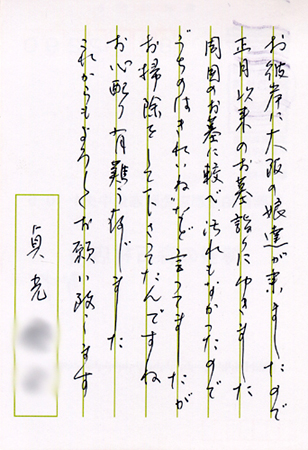 お彼岸に大阪の娘達が来ましたので
正月以来のお墓詣りにゆきました
周囲のお墓に較べ汚れもなかったので
うちのはきれいね"など言ってましたが
お掃除をして下さってたんですね
お心配り有難う存じました
これからもよろしくお願い致します
貞光